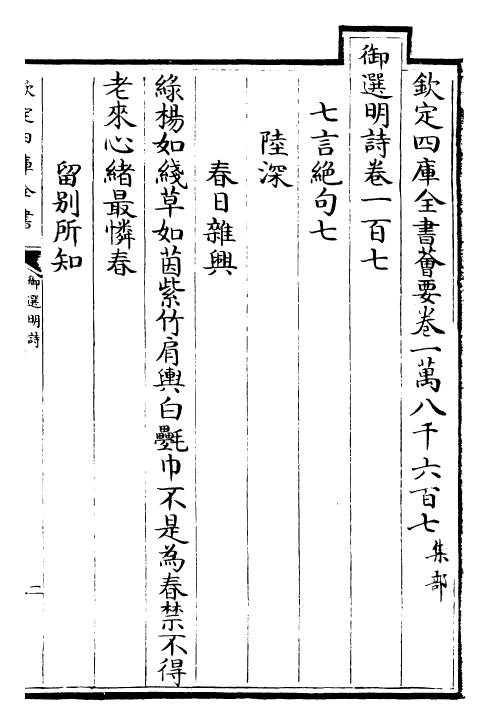 欽定四庫全書薈要卷一萬八千六百七 集部
御選明詩卷一百七
七言絕句七
陸深
春日雜興
綠楊如綫草如茵紫竹肩輿白氎巾不是為春禁不得
老來心緒最憐春
留別所知
欽定四庫全書
御選明詩